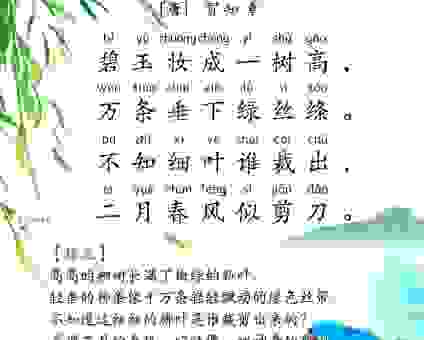 ［唐］贺知章
bì yù zhuāng chéng yī shù gāo
碧玉妆成一树高，
wàn tiáo chuí xià lǜ sī tāo
万条垂下绿丝绦。
bù zhī xì yè shuí cái chū
不知细叶谁裁出，
èr yuè chūn fēng sì jiǎn dāo
二月春风似剪刀。
高高的柳树长满了翠绿的新叶，
轻柔的柳条像千万条轻轻飘动的绿色丝带。
不知道这细细的柳叶是谁裁剪出来的？